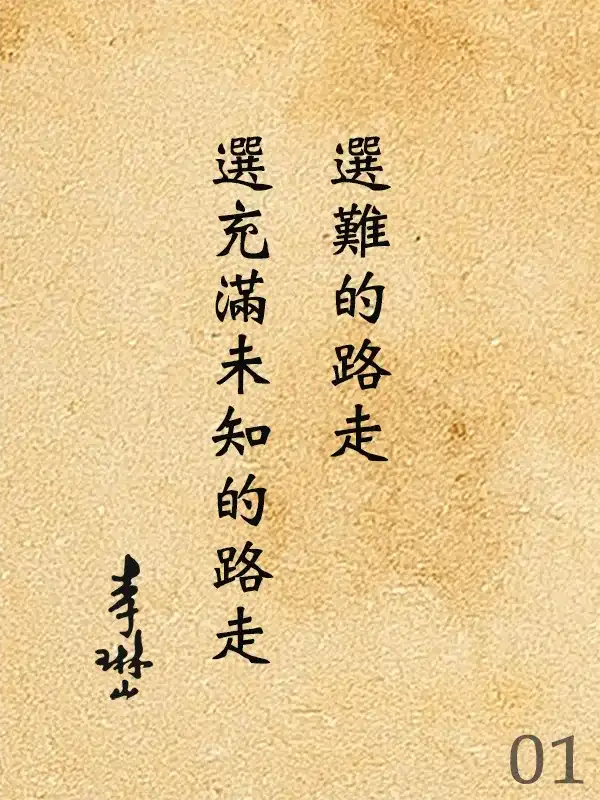 選難的路走
選充滿未知的路走
李琳山
01